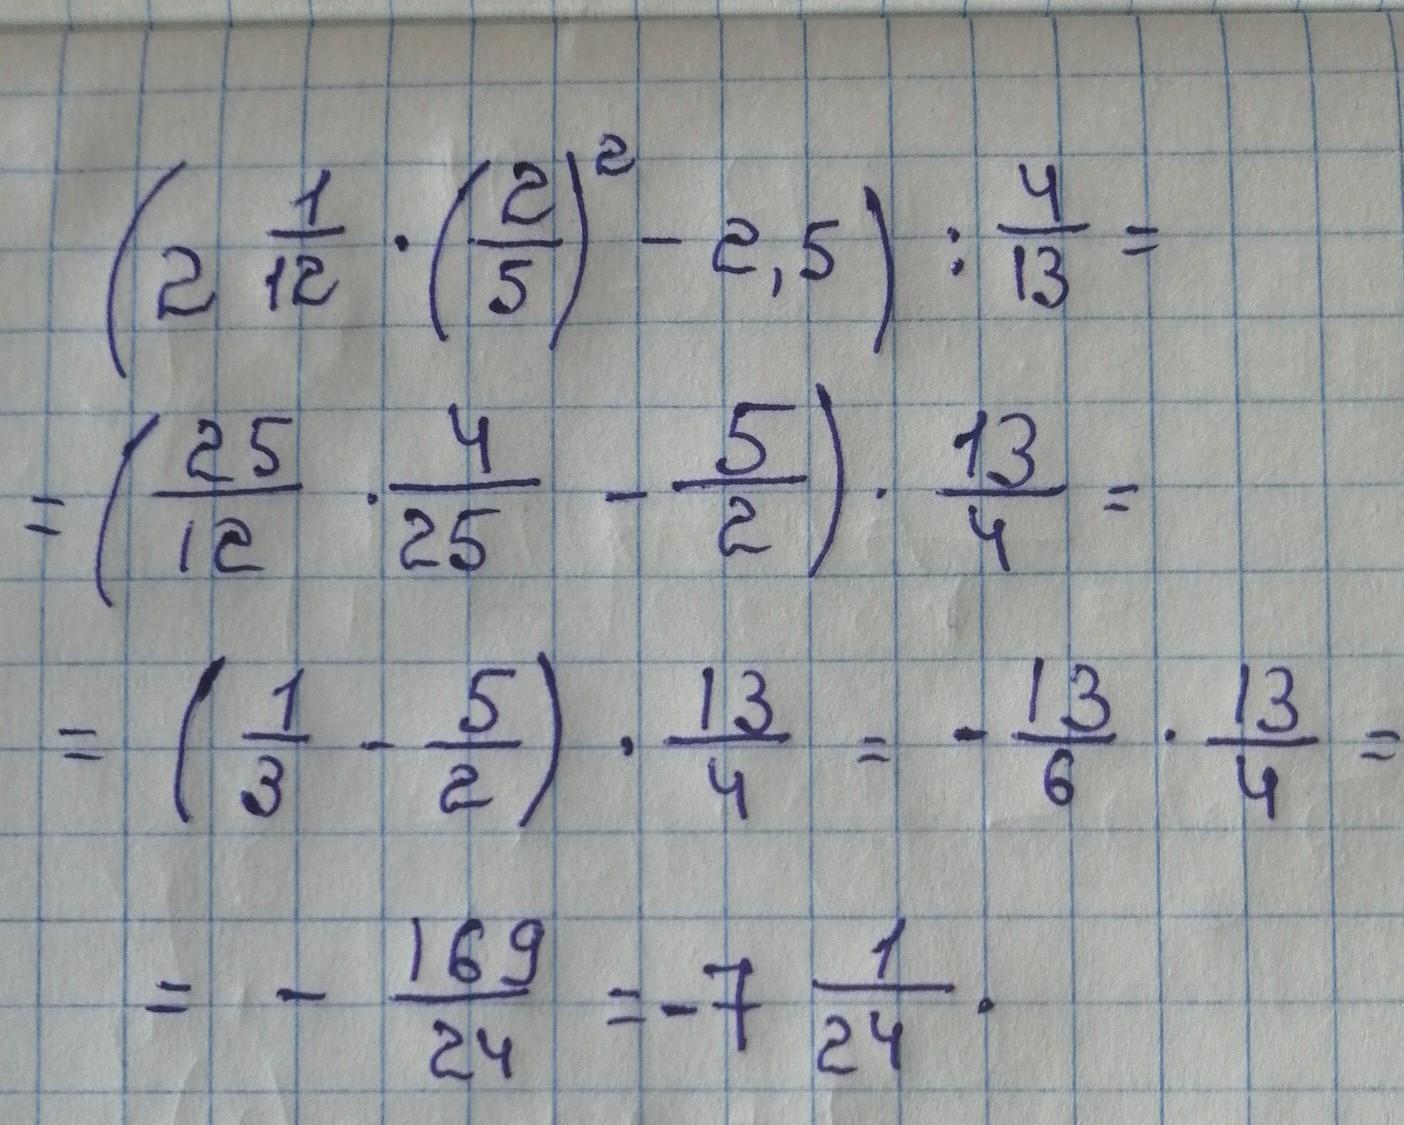 (2 1/12 · (2/5)² - 2,5) : 4/13 =
= (25/12 · 4/25 - 5/2) · 13/4 =
= (1/3 - 5/2) · 13/4 = - 13/6 · 13/4 =
= - 169/24 = -7 1/24 .